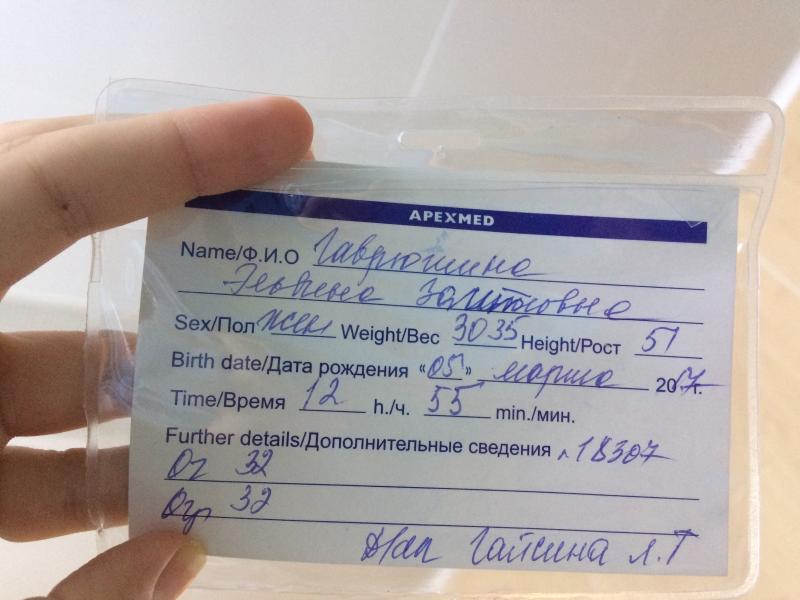 APEXMED
Name/Ф.И.О Гаврюшина
Эльвина Залитовна
Sex/Пол жен Weight/Вес 3035 Height/Рост 51
Birth date/Дата рождения «05» марта 2017 г.
Time/Время 12 h./ч. 55 min./мин.
Further details/Дополнительные сведения 18307
Ог 32
Огр 32
Гайсина Л.Т